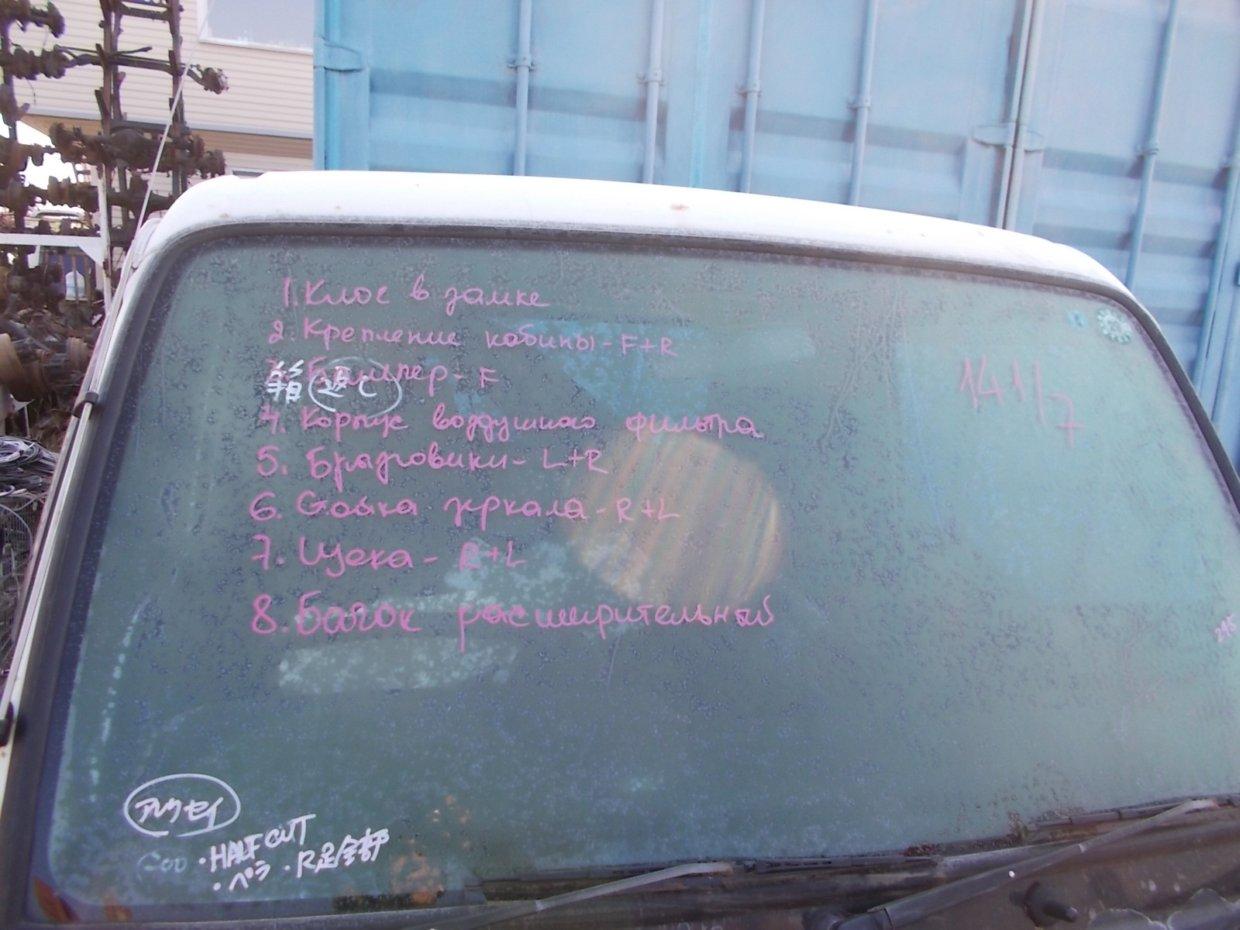 1. Клюс в замке
2. Крепление кабины - F+R
3. Бампер - F
箱 返し
141/7
4. Корпус воздушного фильтра
5. Брызговики - L+R
6. Стойка зеркала - R+L
7. Щека - R+L
8. Бачок расширительный
295
アレクセイ
・HALF CUT
・ペラ ・R足全部